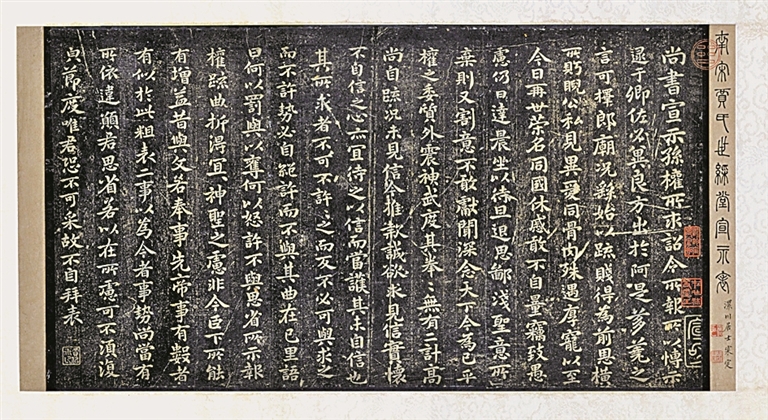 南宋賈氏世綵堂宣示表
尚書宣示孫權所求詔令所報所以博示
逮于卿佐必冀良方出於阿是芻蕘之
言可擇郎廟況繇始以疏賤得為前恩橫
所盻睨公私見異愛同骨肉殊遇厚寵以至
今日再世榮名同國休慼敢不自量竊致愚
慮仍日達晨坐以待旦退思鄙淺聖意所
棄則又割意不敢獻聞深念天下今為已平
權之委質外震神武度其拳〻無有二計高
尚自疏況未見信今推款誠欲求見信實懷
不自信之心亦宜待之以信而當護其未自信也
其所求者不可不許〻之而反不必可與求之
而不許勢必自絕許而不與其曲在己里語
曰何以罰與以奪何以怒許不與思省所示報
權疏曲折得宜〻神聖之慮非今臣下所能
有增益昔與文若奉事先帝事有數者
有似於此粗表二事以為今者事勢尚當有
所依違願君思省若以在所慮可不須復
皃節度唯君恐不可采故不自拜表